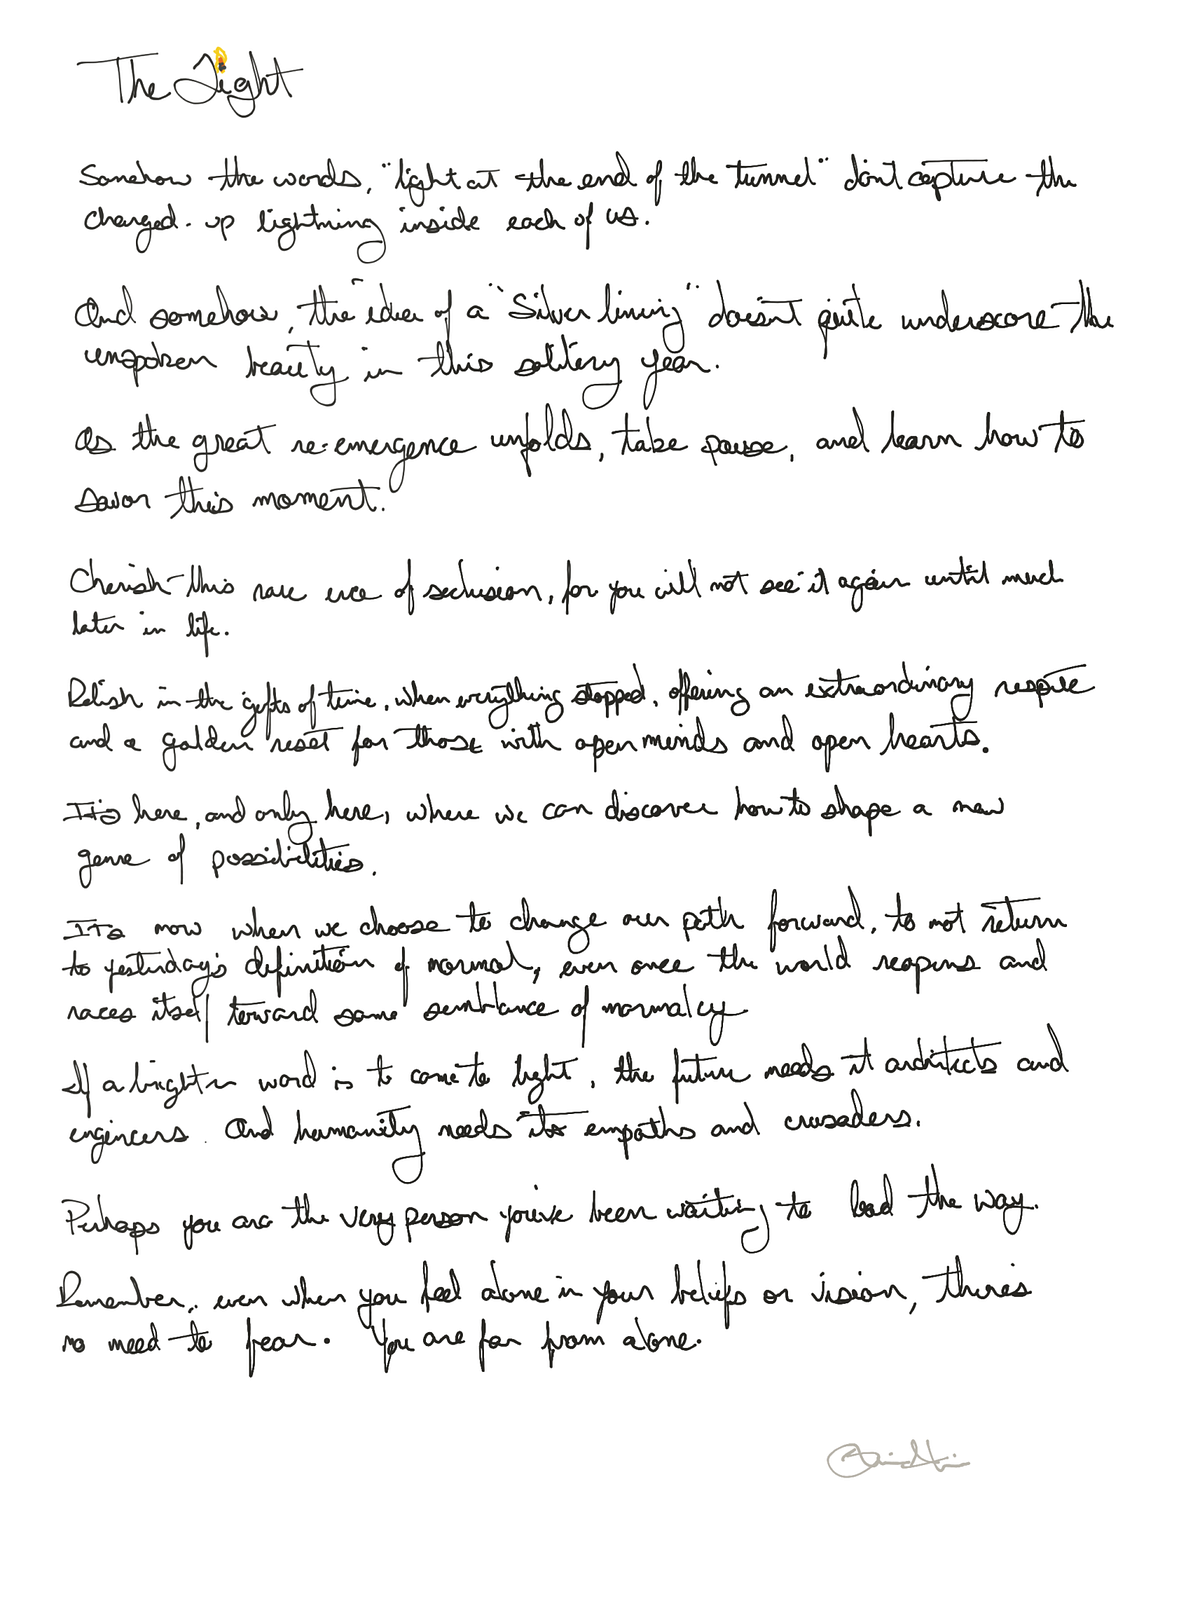 The Light
Somehow the words, "light at the end of the tunnel" don't capture the
charged-up lightning inside each of us.
And somehow, the idea of a "Silver lining" doesn't quite underscore the
unspoken beauty in this solitary year.
As the great re-emergence unfolds, take pause, and learn how to
savor this moment.
Cherish this rare era of seclusion, for you will not see it again until much
later in life.
Relish in the gifts of time, when everything stopped, offering an extraordinary respite
and a golden reset for those with open minds and open hearts.
It's here, and only here, where we can discover how to shape a new
genre of possibilities.
It's now when we choose to change our path forward, to not return
to yesterday's definition of normal, even once the world reopens and
races itself toward some semblance of normalcy
If a brighter word is to come to light, the future needs it architects and
engineers. And humanity needs its empaths and crusaders.
Perhaps you are the very person you've been waiting to lead the way.
Remember, even when you feel alone in your beliefs or vision, there's
no need to fear. You are far from alone.